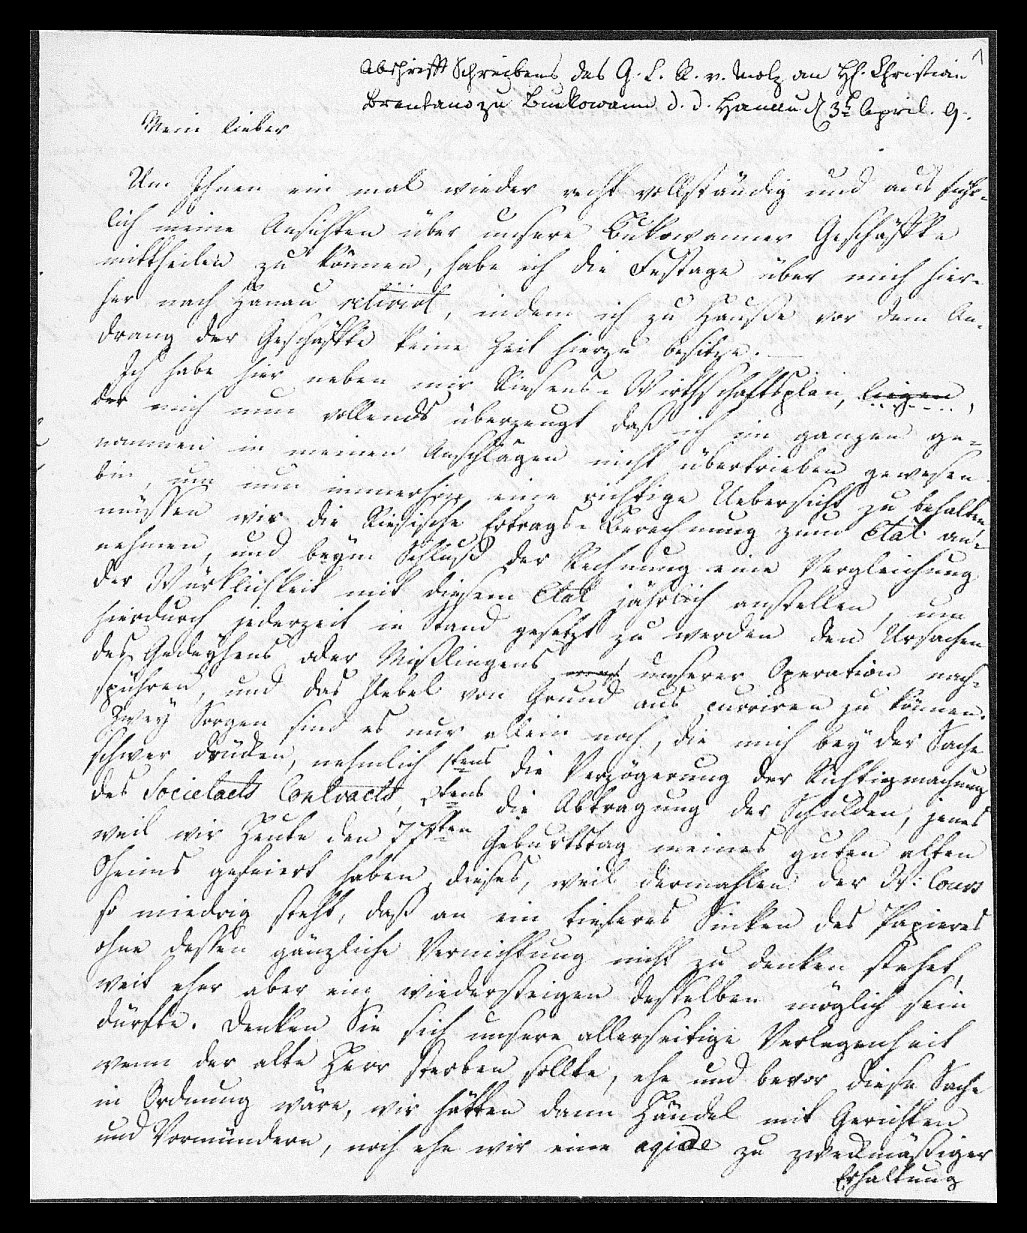 1
Abschrifft Schreibens des G. L. R. v. Motz an H. Christian
Brentano zu Buckowann d. d. Hanau d 3t April. 9.
Mein lieber
Um Ihnen ein mal wieder recht vollständig und ausführ-
lich meine Ansichten über unsere Bukowanner Geschäffte
mittheilen zu können, habe ich die Festage über mich hier-
her nach Hanau retirirt, indem ich zu Hauße vor dem An-
drang der Geschäffte keine Zeit hierzu besitze. —
Ich habe hier neben mir Riesens Wirthschaftsplan, liegen,
der mich nun vollends überzeugt daß ich im ganzen ge-
nommen in meinen Anschlägen nicht übertrieben gewesen
bin, um nun immerhin eine richtige Uebersicht zu behalten
müssen wir die Riesische Ertrags-Berechnung zum Etat an-
nehmen, und beym Schluß der Rechnung eine Vergleichung
der Würklichkeit mit diesem Etat jährlich anstellen, um
hierdurch jederzeit in Stand gesetzt zu werden den Ursachen
des Gedeyhens oder Mißlingens unserer Operation nach-
spühren, und das Uebel von Grund aus curriren zu können.
Zwey Sorgen sind es nur allein noch, die mich bey der Sache
schwer drücken, nehmlich 1tens die Verzögerung der Richtigmachung
des Societaets Contracts 2tens die Abtragung der Schulden, jenes
weil wir Heute den 77sten Geburtstag meines guten alten
Oheims gefeiert haben, dieses, weil dermahlen der W: Cours
so niedrig steht, daß an ein tieferes Sinken des Papieres
ohne dessen gänzliche Vernichtung nicht zu denken stehet,
weit eher aber ein wiedersteigen desselben möglich sein
dürfte. Denken Sie sich unsere allerseitige Verlegenheit
wenn der alte Herr sterben sollte, ehe und bevor diese Sache
in Ordnung wäre, wir hätten dann Händel mit Gerichten
und Vormündern, noch ehe wir eine agide zu zweckmäßiger
Erhaltung